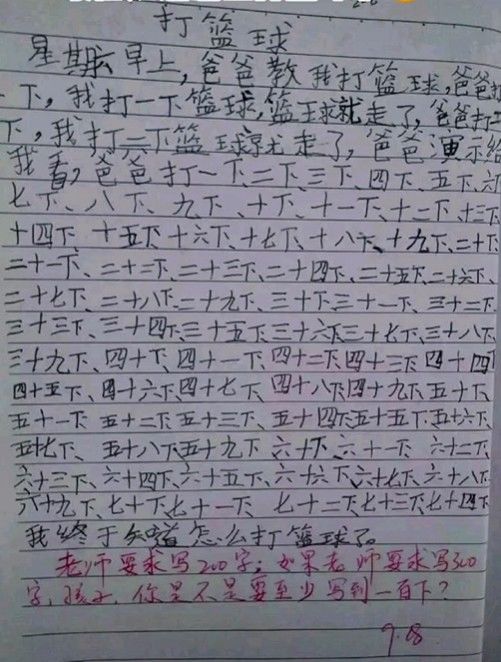 打篮球
星期六早上，爸爸教我打篮球，爸爸打
一下，我打一下篮球，篮球就走了，爸爸打二
下，我打二下篮球就走了，爸爸演示给
我看，爸爸打一下、二下、三下、四下、五下、六
七下、八下、九下、十下、十一下、十二下、十三下
十四下、十五下、十六下、十七下、十八下、十九下、二十下、
二十一下、二十二下、二十三下、二十四下、二十五下、二十六下、
二十七下、二十八下、二十九下、三十下、三十一下、三十二下
三十三下、三十四下、三十五下、三十六下、三十七下、三十八下、
三十九下、四十下、四十一下、四十二下、四十三下、四十四
四十五下、四十六下、四十七下、四十八下、四十九下、五十下、
五十一下、五十二下、五十三下、五十四下、五十五下、五十六下、
五十七下、五十八下、五十九下、六十下、六十一下、六十二下、
六十三下、六十四下、六十五下、六十六下、六十七下、六十八下
六十九下、七十下、七十一下、七十二下、七十三下、七十四下
我终于知道怎么打篮球了。
老师要求写200字；如果老师要求写300
字，孩子，你是不是要至少写到一百下？